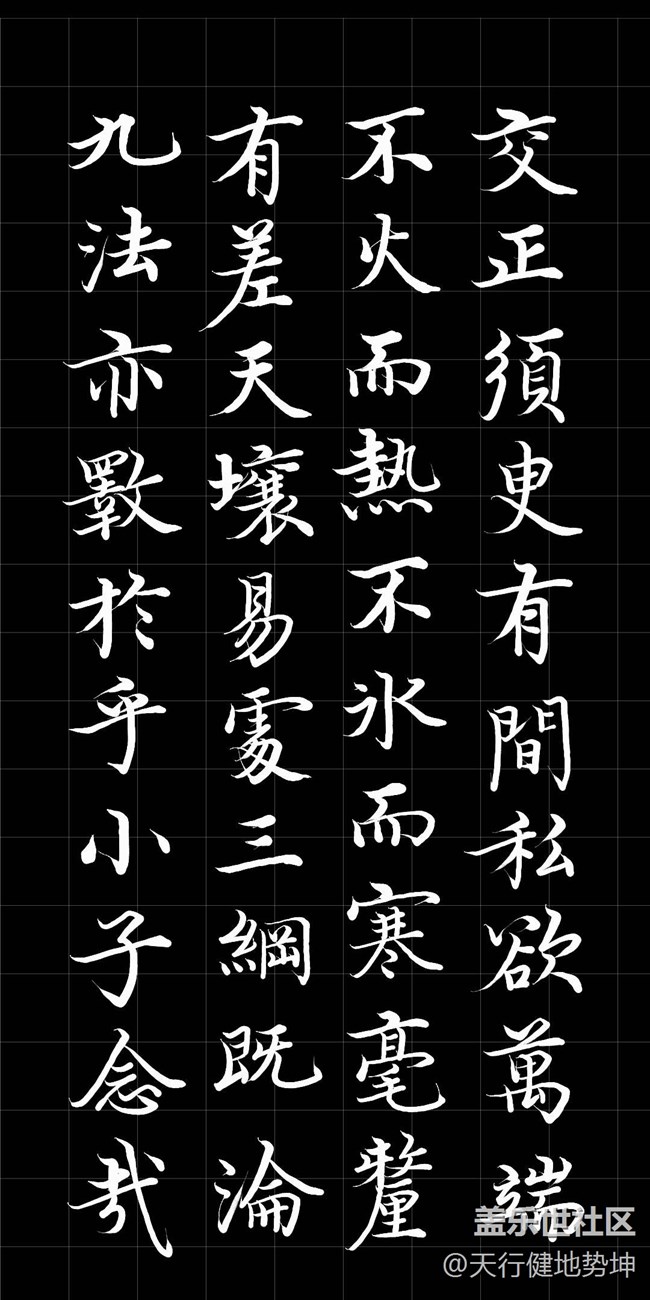 交正須叓有間私欲萬端
不火而熱不氷而寒毫釐
有差天壤易處三綱既淪
九法亦斁於乎小子念哉
盖乐世社区
@天行健地势坤